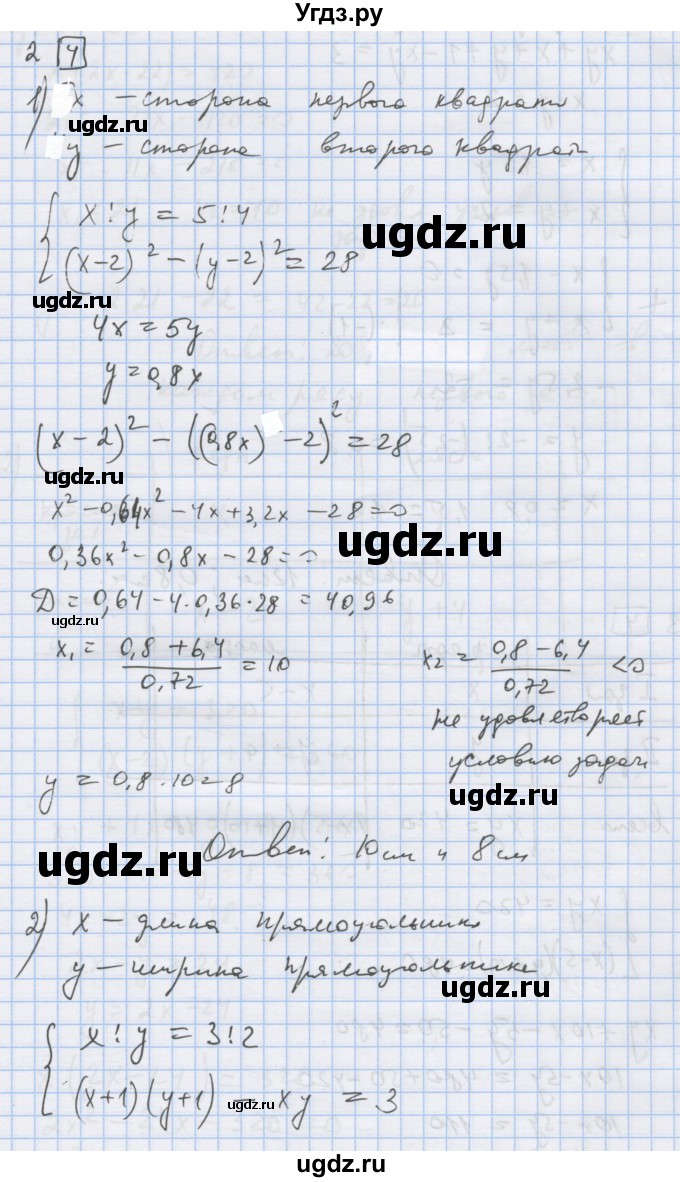 Угдз.ру
2 4
1) x – сторона первого квадрата
ugdz.ru
y – сторона второго квадрат
{ x : y = 5 : 4
ugdz.ru
(x–2)² – (y–2)² = 28
ugdz.ru
4x = 5y
y = 0,8x
(x – 2)² – ((0,8x) – 2)² = 28
ugdz.ru
x² – 0,64x² – 4x + 3,2x – 28 = 0
ugdz.ru
0,36x² – 0,8x – 28 = 0
Д = 0,64 – 4·0,36·28 = 40,96
x₁ = (0,8 + 6,4)/0,72 = 10 x₂ = (0,8 – 6,4)/0,72 < 0
не удовлетворяет
условию задачи
y = 0,8·10 = 8
ugdz.ru
ugdz.ru
Ответ: 10 см и 8 см
2) x – длина прямоугольник
y – ширина прямоугольнике
ugdz.ru
{ x : y = 3 : 2
(x+1)(y+1) – xy = 3
ugdz.ru
ugdz.ru